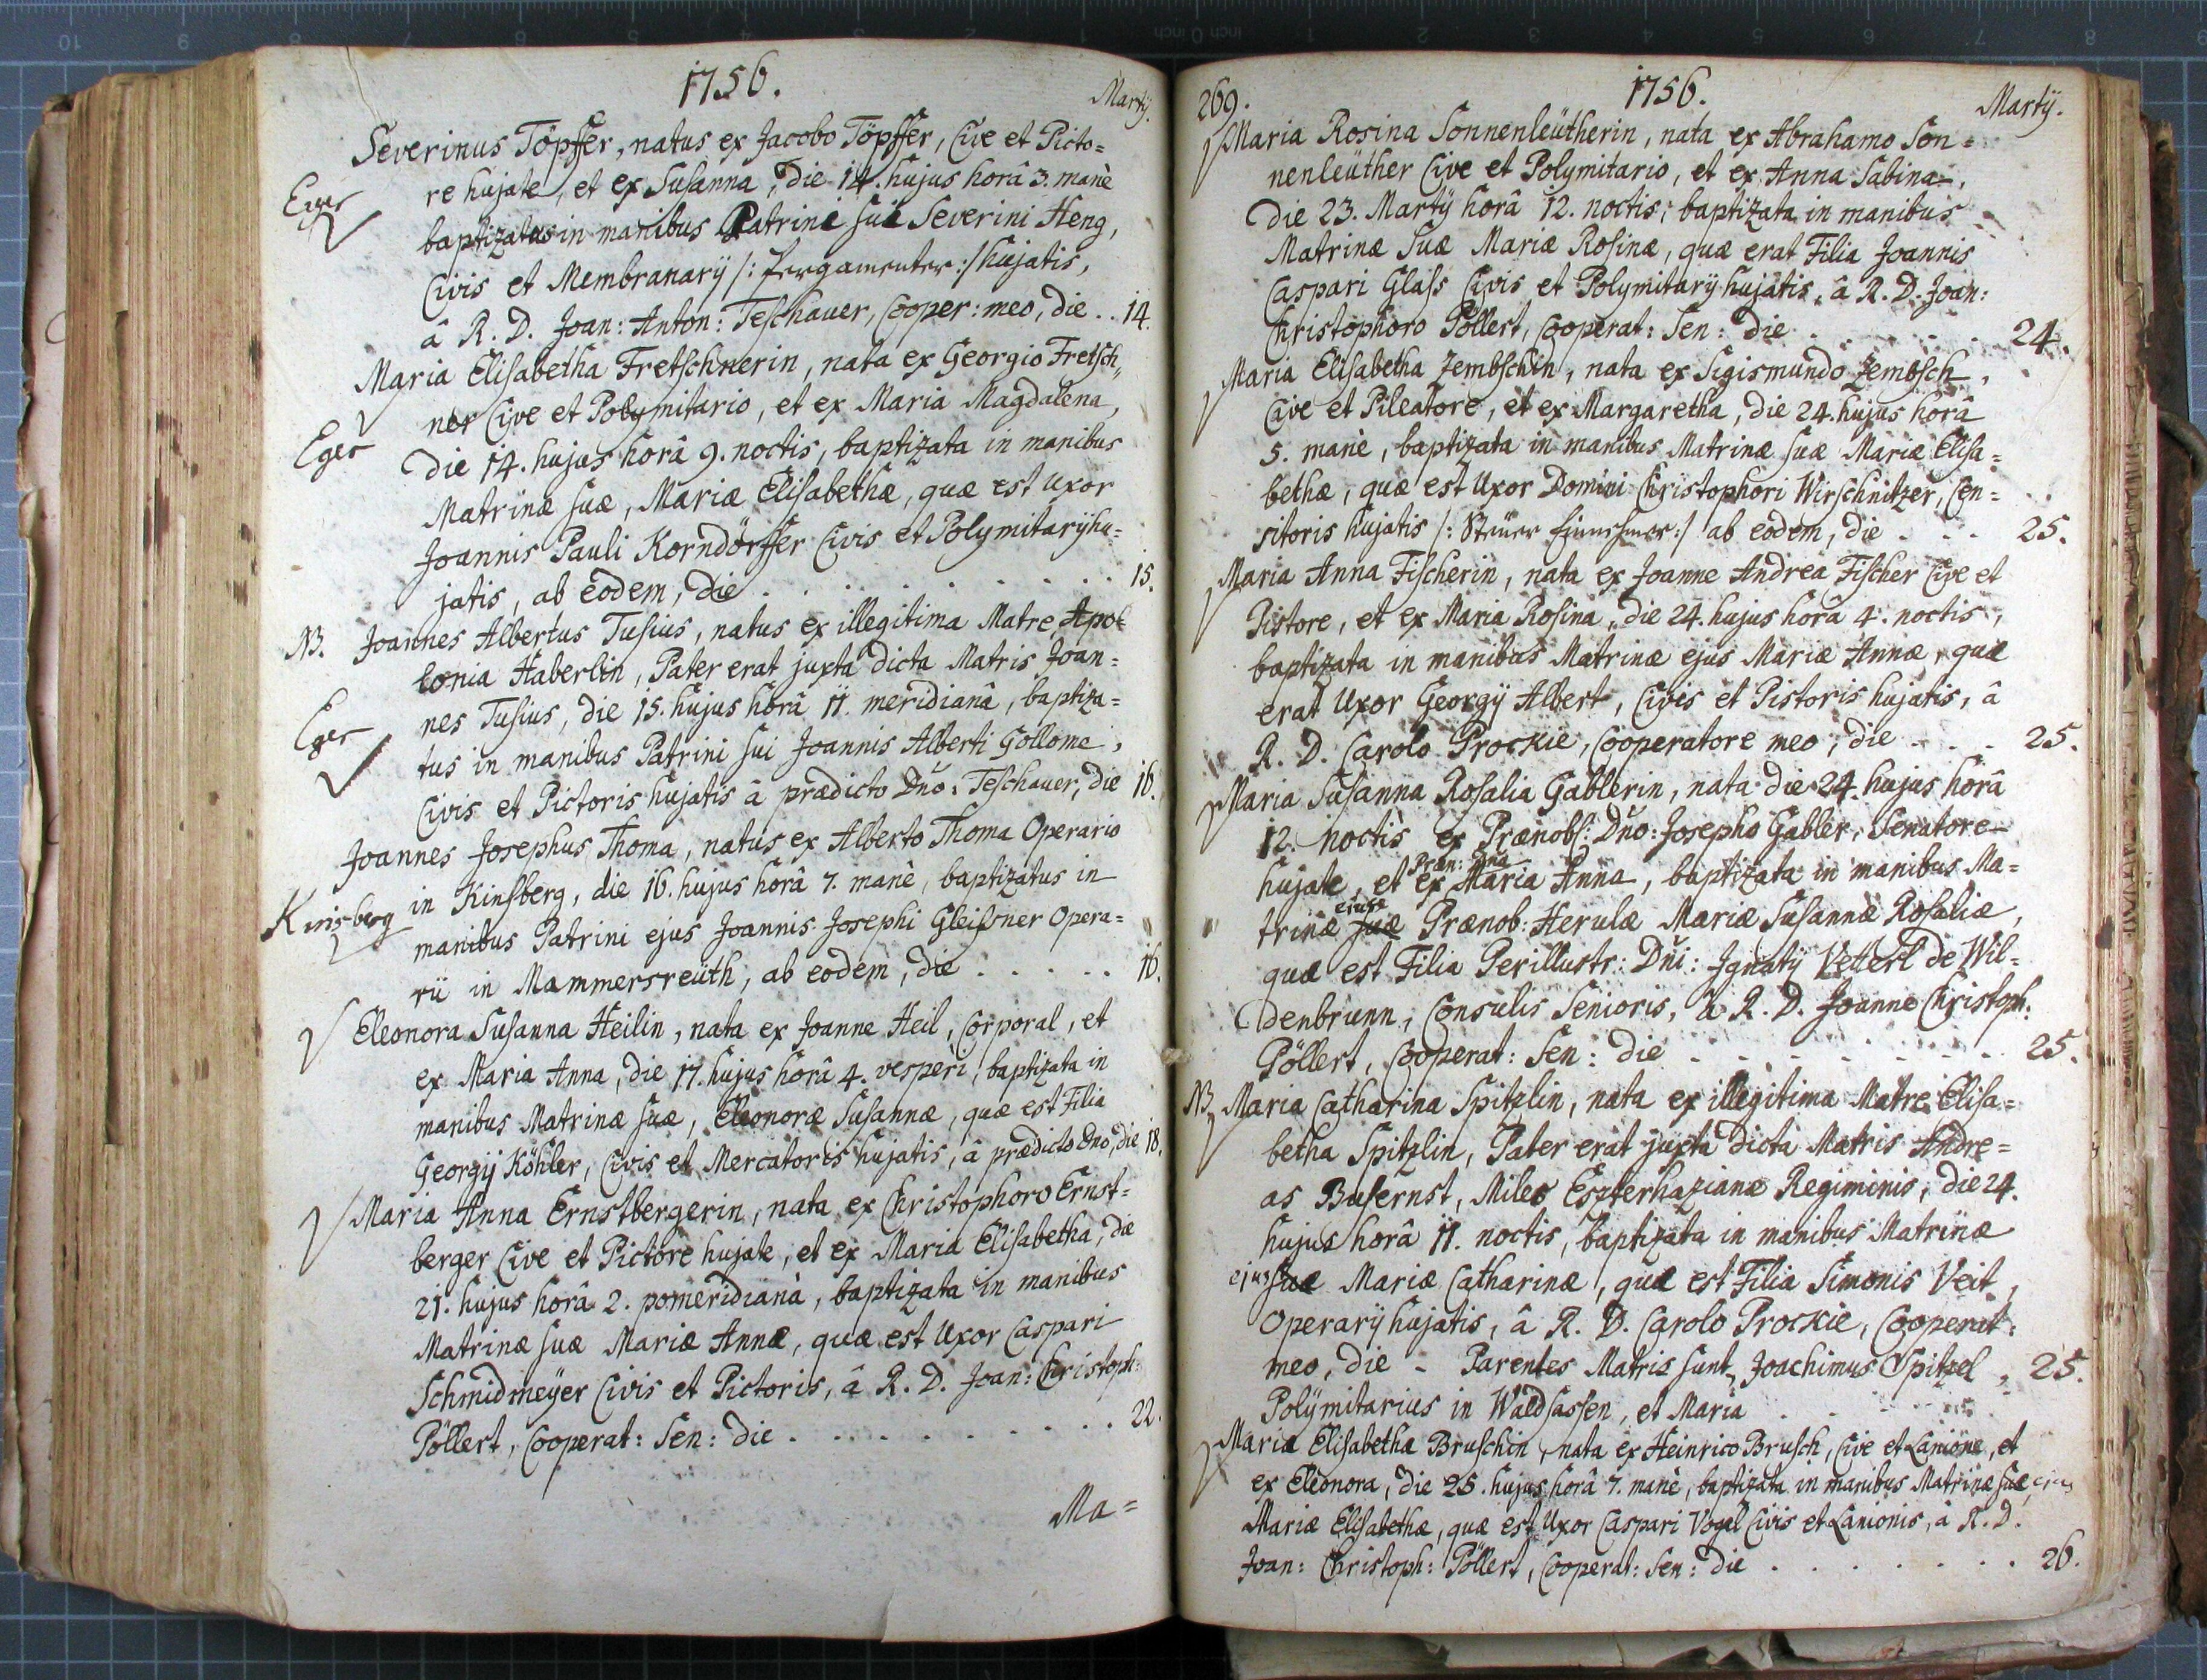 1756.
Martÿ.
Severinus Töpffer, natus ex Jacobo Töpffer, Cive et Picto=
re hujate, et ex Susanna, die 14. hujus horâ 3. manè
Eger
baptizatus in manibus Patrini sui Severini Heng,
Civis et Membranarÿ /: Pergamenter :/ hujatis,
â R. D. Joan: Anton: Teschauer, Cooper: meo, die . . 14.
Maria Elisabetha Fretschnerin, nata ex Georgio Fretsch„
ner Cive et Polymitario, et ex Maria Magdalena,
Eger
die 14. hujus horâ 9. noctis, baptizata in manibus
Matrinæ suæ, Mariæ Elisabethæ, quæ est Uxor
Joannis Pauli Korndörffer Civis et Polymitarÿ hu=
jatis, ab eodem, die . . . . . . . . . 15.
NB. Joannes Albertus Tusius, natus ex illegitima Matre Apol
lonia Haberlin, Pater erat juxta dicta Matris Joan=
Eger
nes Tusius, die 15. hujus horâ 11. meridianâ, baptiza=
tus in manibus Patrini sui Joannis Alberti Gollome,
Civis et Pictoris hujatis â prædicto Dño: Teschauer, die 16.
Joannes Josephus Thoma, natus ex Alberto Thoma Operario
Kinsberg
in Kinsberg, die 16. hujus horâ 7. manè, baptizatus in
manibus Patrini ejus Joannis Josephi Gleißner Opera=
rii in Mammersreüth, ab eodem, die . . . . . 16.
Eleonora Susanna Heilin, nata ex Joanne Heil, Corporal, et
ex Maria Anna, die 17. hujus horâ 4. vesperi, baptizata in
manibus Matrinæ suæ, Eleonoræ Susannæ, quæ est Filia
Georgÿ Köhler, Civis et Mercatoris hujatis, â prædicto Dno, die 18.
Maria Anna Ernstbergerin, nata ex Christophoro Ernst=
berger Cive et Pictore hujate, et ex Maria Elisabetha, die
21. hujus horâ 2. pomeridianà, baptizata in manibus
Matrinæ suæ Mariæ Annæ, quæ est Uxor Caspari
Schmidmeÿer Civis et Pictoris, â R. D. Joan: Christoph:
Pöllert, Cooperat: Sen: die . . . . . . . . . 22.
Ma=
269.
1756.
Martÿ.
Maria Rosina Sonnenleütherin, nata ex Abrahamo Son=
nenleüther Cive et Polymitario, et ex Anna Sabina,
die 23. Martÿ horâ 12. noctis, baptizata in manibus
Matrinæ Suæ Mariæ Rosinæ, quæ erat Filia Joannis
Caspari Glass Civis et Polymitarÿ hujatis, â R. D. Joan:
Christophoro Pöllert, Cooperat: Sen: die . . . . . . 24.
Maria Elisabetha Zembschin, nata ex Sigismundo Zembsch,
Cive et Pileatore, et ex Margaretha, die 24. hujus horâ
5. manè, baptizata in manibus Matrinæ suæ Mariæ Elisa=
bethæ, quæ est Uxor Domini Christophori Wirschnitzer, Cen=
sitoris hujatis /: Steüer Einnehmer :/ ab eodem, die . . . 25.
Maria Anna Fischerin, nata ex Joanne Andrea Fischer Cive et
Pistore, et ex Maria Rosina, die 24. hujus horâ 4. noctis,
baptizata in manibus Matrinæ ejus Mariæ Annæ, quæ
erat Uxor Georgÿ Albert, Civis et Pistoris hujatis, â
R. D. Carolo Prockie, Cooperatore meo, die . . . 25.
Maria Susanna Rosalia Gablerin, nata die 24. hujus horâ
12. noctis ex Prænobl: Dño: Josepho Gabler, Senatore
Præn: Dna
hujate, et ex Maria Anna, baptizata in manibus Ma=
ejus
trinæ suæ Prænob: Herulæ Mariæ Susannæ Rosaliæ,
quæ est Filia Perillustr: Dñi: Ignatÿ Vetterl de Wil=
denbrunn, Consulis Senioris, â R. D. Joanne Christoph:
Pöllert, Cooperat: Sen: die . . . . . . . . . 25.
NB. Maria Catharina Spitzlin, nata ex illegitima Matre Elisa=
betha Spitzlin, Pater erat juxta dicta Matris Andre=
as Busernst, Miles Eszterhazianæ Regiminis, die 24.
hujus horâ 11. noctis, baptizata in manibus Matrinæ
ejus suæ Mariæ Catharinæ, quæ est Filia Simonis Veit,
Operarÿ hujatis, â R. D. Carolo Prockie, Cooperat:
meo, die - Parentes Matris sunt, Joachimus Spitzel, 25.
Polÿmitarius in Waldsassen, et Maria . . . . .
Maria Elisabetha Bruschin, nata ex Heinrico Brusch, Cive et Lanione, et
ex Eleonora, die 25. hujus horâ 7. manè, baptizata in manibus Matrinæ suæ ejus
Mariæ Elisabethæ, quæ est Uxor Caspari Vogel Civis et Lanionis, â R. D.
Joan: Christoph: Pöllert, Cooperat: Sen: die . . . . . . . 26.